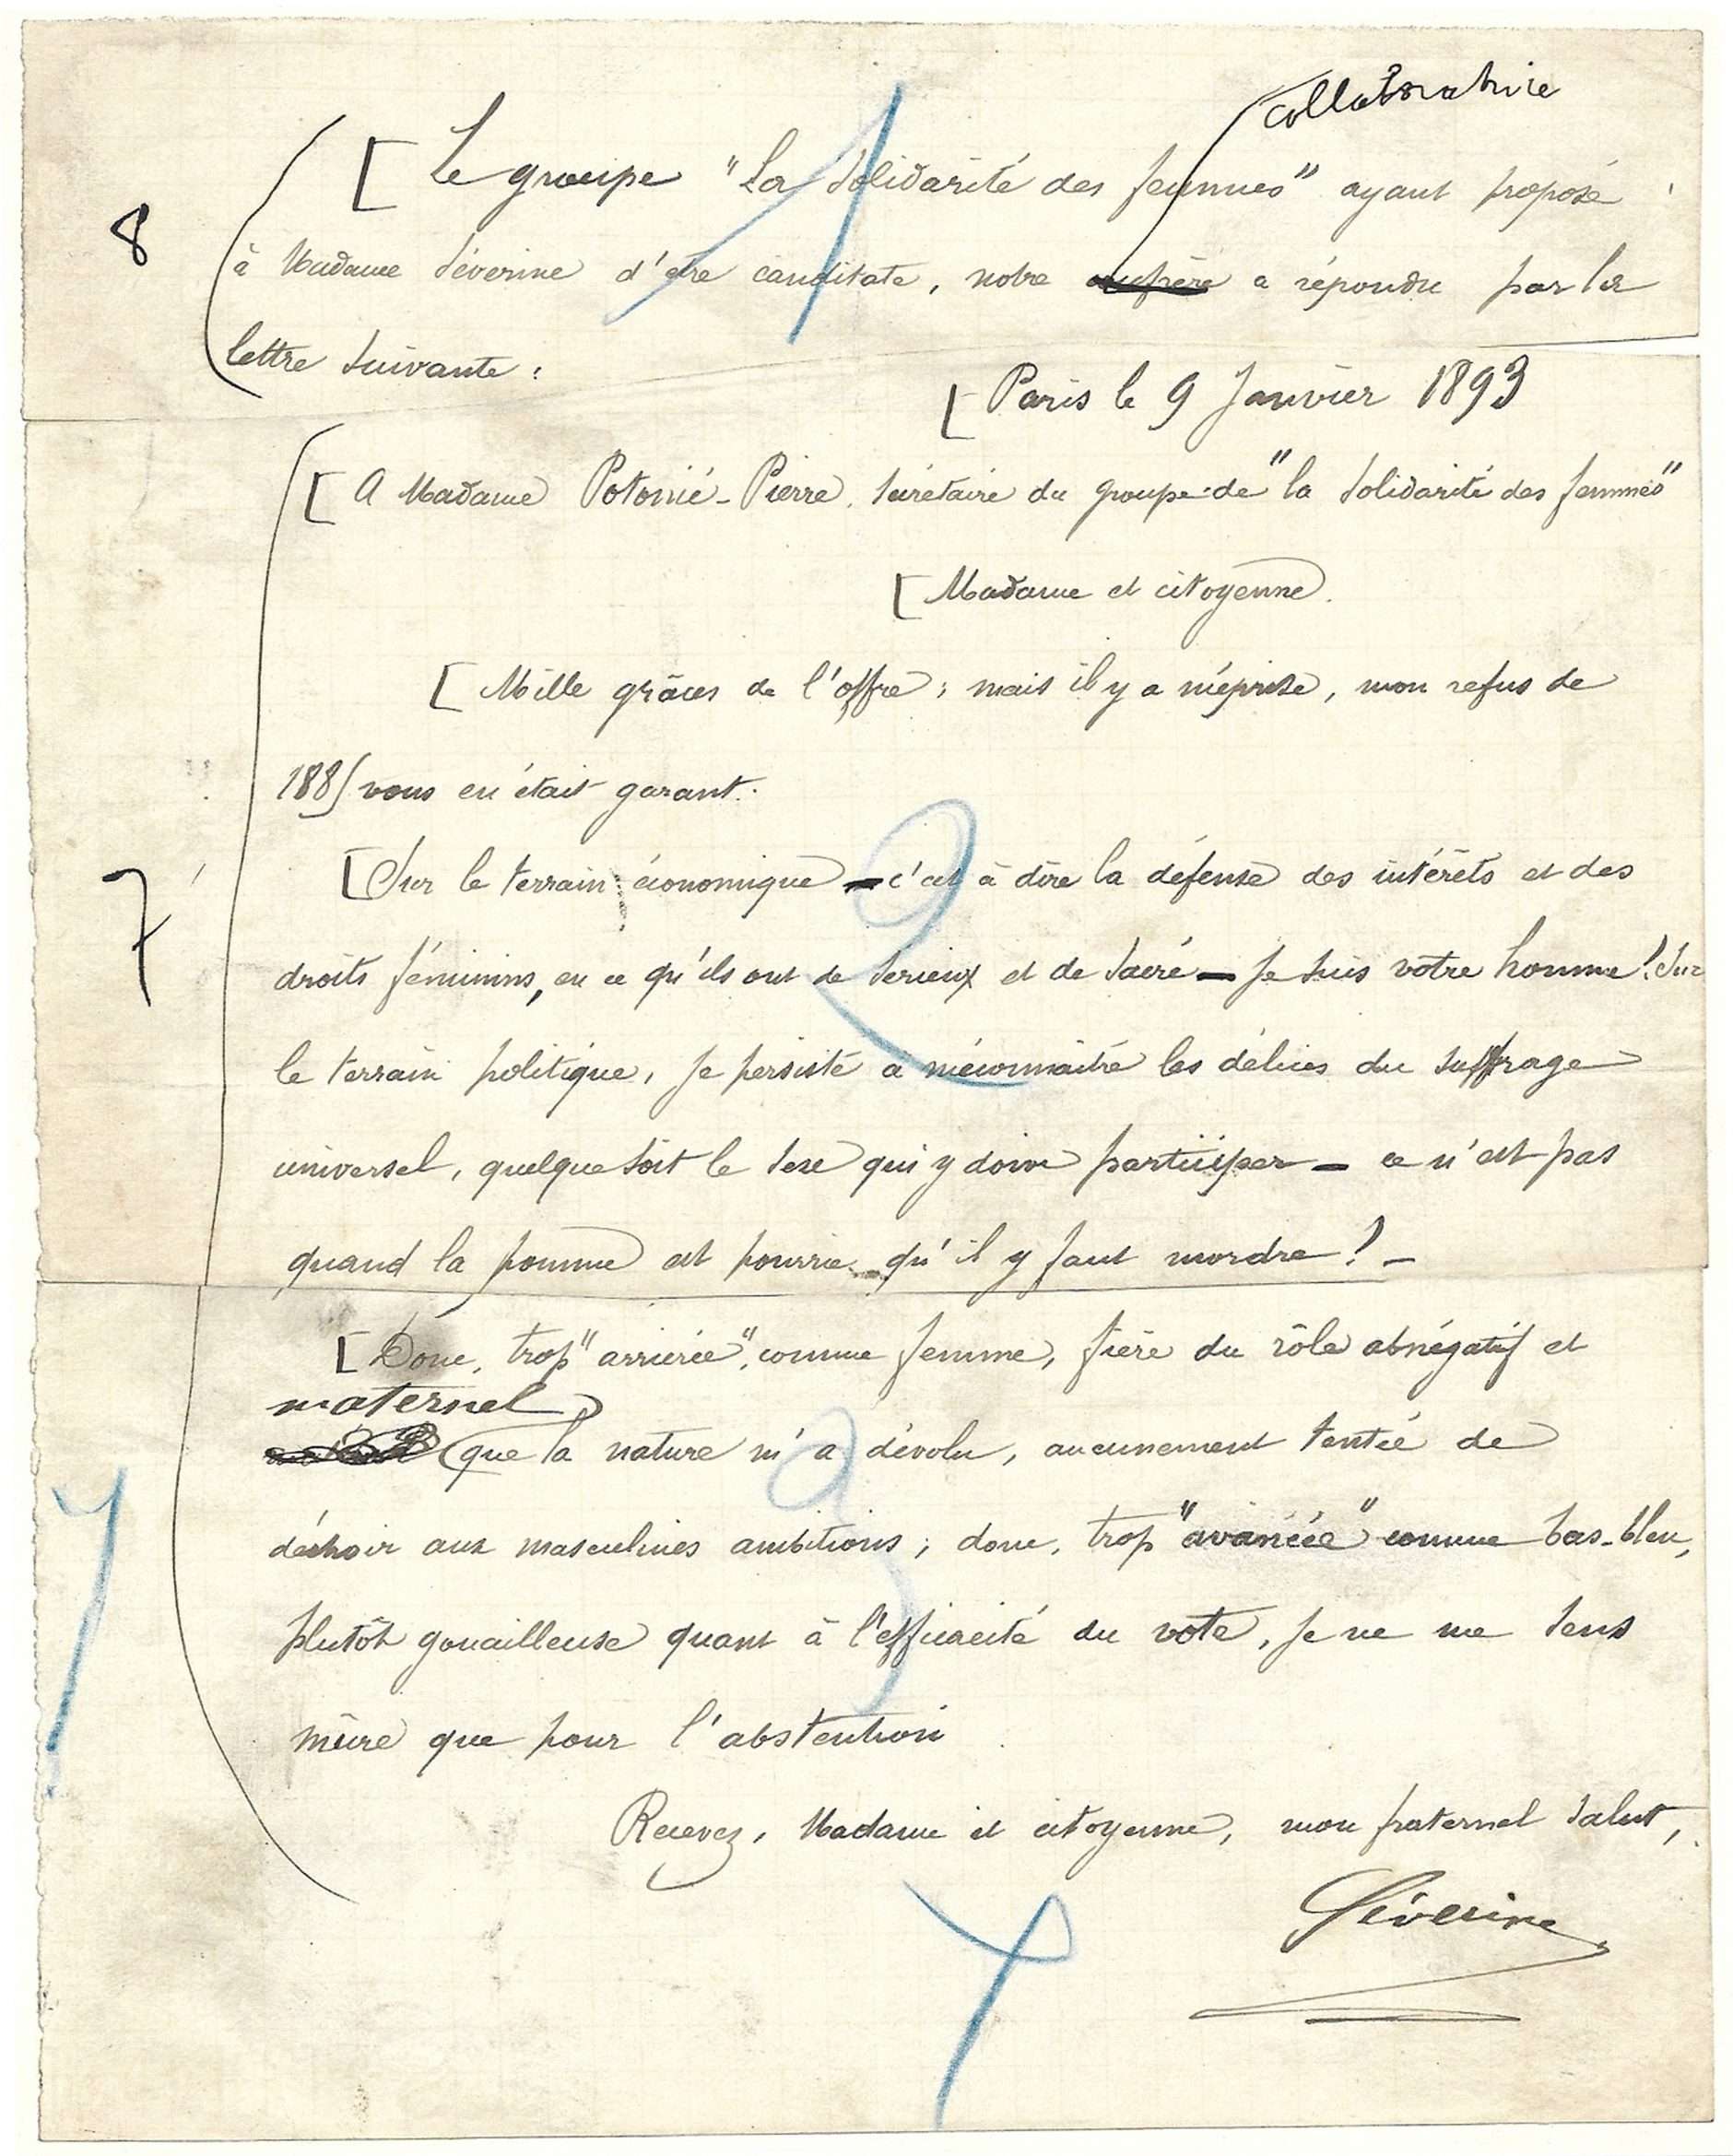 collaboratrice
[ Le groupe "La Solidarité des femmes" ayant proposé
8
à Madame Séverine d'être canditate, notre confrère a répondu par la
lettre suivante :
[ Paris le 9 Janvier 1893
[ A Madame Potonié-Pierre. Secrétaire du groupe de "la Solidarité des femmes"
[ Madame et citoyenne.
[ Mille grâces de l'offre ; mais il y a méprise, mon refus de
1885 vous en était garant.
7
[ Sur le terrain économique – c'est à dire la défense des intérêts et des
droits féminins, en ce qu'ils ont de serieux et de sacré – Je suis votre homme ! Sur
le terrain politique, Je persiste à méconnaître les délices du suffrage
universel, quelque soit le sexe qui y doive participer – ce n'est pas
quand la pomme est pourrie qu'il y faut mordre ! –
[ Donc, trop "arriérée", comme femme, fière du rôle abnégatif et
maternel
que la nature m'a dévolu, aucunement tentée de
déchoir aux masculines ambitions ; donc, trop "avancée" comme bas-bleu,
plutôt gouailleuse quant à l'efficacité du vote, Je ne me sens
mûre que pour l'abstention
Recevez, Madame et citoyenne, mon fraternel salut,
Séverine
1
2
3
4